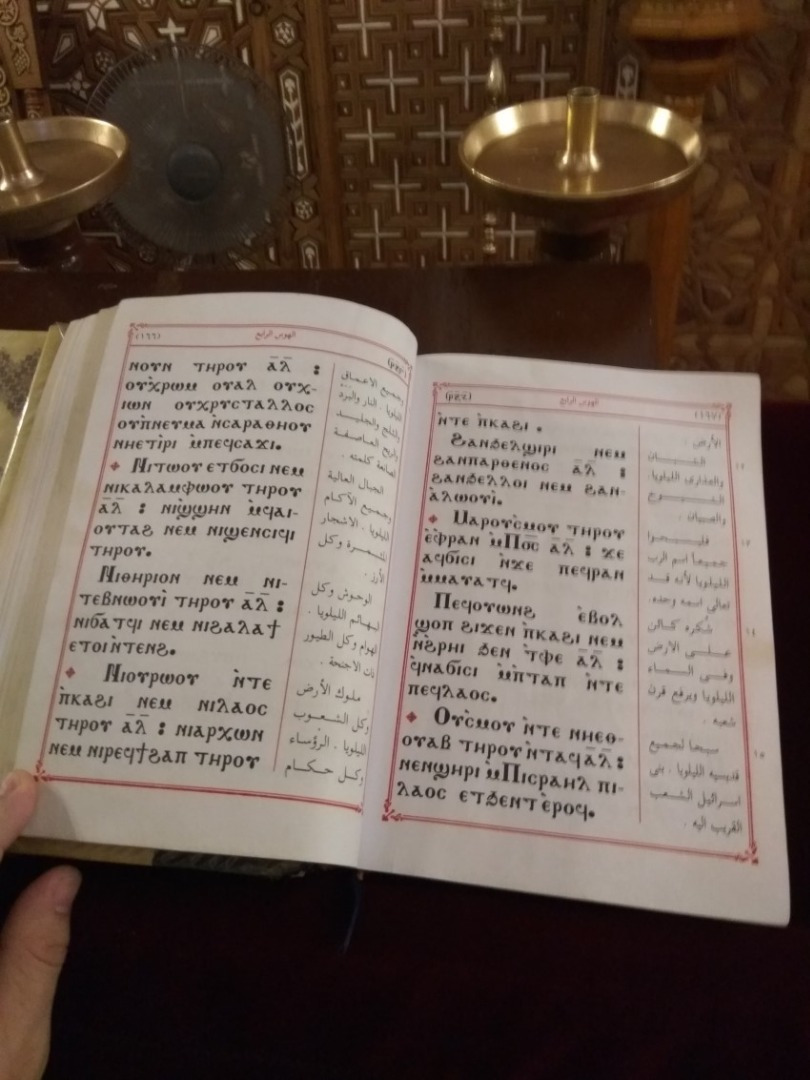 (١٦٦) الهوس الرابع
ⲛⲟⲩⲛ ⲧⲏⲣⲟⲩ ⲁ̅ⲗ̅ :
ⲟⲩⲭ̀ⲣⲱⲙ ⲟⲩⲁⲗ ⲟⲩⲭ-
ⲓⲱⲛ ⲟⲩⲭⲣⲩⲥⲧⲁⲗⲗⲟⲥ
ⲟⲩⲡⲛⲉⲩⲙⲁ ⲛ̀ⲥⲁⲣⲁⲑⲏⲟⲩ
ⲛⲏⲉⲧⲓ̀ⲣⲓ ⲙ̀ⲡⲉϥⲥⲁϫⲓ.
Ⲛⲓⲧⲱⲟⲩ ⲉⲧϭⲟⲥⲓ ⲛⲉⲙ
ⲛⲓⲕⲁⲗⲁⲙⲫⲱⲟⲩ ⲧⲏⲣⲟⲩ
ⲁ̅ⲗ̅ : ⲛⲓϣ̀ϣⲏⲛ ⲙ̀ϥⲁⲓ-
ⲟⲩⲧⲁϩ ⲛⲉⲙ ⲛⲓϣⲉⲛⲥⲓϥⲓ
ⲧⲏⲣⲟⲩ.
Ⲛⲓⲑⲏⲣⲓⲟⲛ ⲛⲉⲙ ⲛⲓ-
ⲧⲉⲃⲛⲱⲟⲩⲓ̀ ⲧⲏⲣⲟⲩ ⲁ̅ⲗ̅ :
ⲛⲓϭⲁⲧϥⲓ ⲛⲉⲙ ⲛⲓϩⲁⲗⲁϯ
ⲉⲧⲟⲓⲛ̀ⲧⲉⲛϩ.
Ⲛⲓⲟⲩⲣⲱⲟⲩ ⲛ̀ⲧⲉ
ⲡ̀ⲕⲁϩⲓ ⲛⲉⲙ ⲛⲓⲗⲁⲟⲥ
ⲧⲏⲣⲟⲩ ⲁ̅ⲗ̅ : ⲛⲓⲁⲣⲭⲱⲛ
ⲛⲉⲙ ⲛⲓⲣⲉϥϯϩⲁⲡ ⲧⲏⲣⲟⲩ
وجميع الاعماق
الليلويا . النار والبرد
والثلج والجليد
والريح العاصفة
الصانعة كلمته .
الجبال العالية
وجميع الآكام
الليلويا . الاشجار
المثمرة وكل
الأرز .
الوحوش وكل
البهائم الليلويا .
الهوام وكل الطيور
ذات الاجنحة .
ملوك الأرض
وكل الشعوب
الليلويا . الرؤساء
وكل حكام
الهوس الرابع (١٦٧)
ⲛ̀ⲧⲉ ⲡ̀ⲕⲁϩⲓ .
Ϩⲁⲛϧⲉⲗϣⲓⲣⲓ ⲛⲉⲙ
ϩⲁⲛⲡⲁⲣⲑⲉⲛⲟⲥ ⲁ̅ⲗ̅ :
ϩⲁⲛϧⲉⲗⲗⲟⲓ ⲛⲉⲙ ϩⲁⲛ-
ⲁ̀ⲗⲱⲟⲩⲓ̀.
Ⲙⲁⲣⲟⲩⲥ̀ⲙⲟⲩ ⲧⲏⲣⲟⲩ
ⲉ̀ⲫⲣⲁⲛ ⲙ̀Ⲡⲟ̅ⲥ̅ ⲁ̅ⲗ̅ : ϫⲉ
ⲁϥϭⲓⲥⲓ ⲛ̀ϫⲉ ⲡⲉϥⲣⲁⲛ
ⲙ̀ⲙⲁⲩⲁⲧϥ.
Ⲡⲉϥⲟⲩⲱⲛϩ ⲉ̀ⲃⲟⲗ
ϣⲟⲡ ϩⲓϫⲉⲛ ⲡ̀ⲕⲁϩⲓ ⲛⲉⲙ
ⲛ̀ϩ̀ⲣⲏⲓ ϧⲉⲛ ⲧ̀ⲫⲉ ⲁ̅ⲗ̅ :
ϥ̀ⲛⲁϭⲓⲥⲓ ⲙ̀ⲡ̀ⲧⲁⲡ ⲛ̀ⲧⲉ
ⲡⲉϥⲗⲁⲟⲥ.
Ⲟⲩⲥ̀ⲙⲟⲩ ⲛ̀ⲧⲉ ⲛⲏⲉⲑ-
ⲟⲩⲁⲃ ⲧⲏⲣⲟⲩ ⲛ̀ⲧⲁϥⲁ̅ⲗ̅ :
ⲛⲉⲛϣⲏⲣⲓ ⲙ̀Ⲡⲓⲥⲣⲁⲏⲗ ⲡⲓ-
ⲗⲁⲟⲥ ⲉⲧϧⲉⲛⲧⲉ̀ⲣⲟϥ.
الأرض .
الشبان
والعذارى الليلويا .
الشيوخ
والصبيان .
فليسبحوا
جميعاً اسم الرب
الليلويا لأنه قد
تعالى اسمه وحده .
شكره كائن
على الأرض
وفى السماء
الليلويا ويرفع قرن
شعبه .
سبحا لجميع
قديسيه الليلويا . بنى
اسرائيل الشعب
القريب اليه .